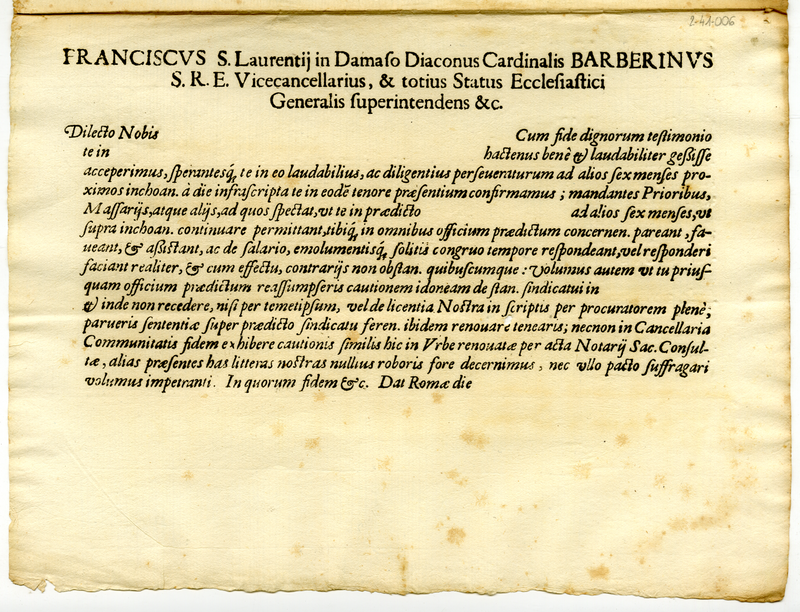 2-41-006
FRANCISCVS S. Laurentij in Damaſo Diaconus Cardinalis BARBERINVS
S. R. E. Vicecancellarius, & totius Status Eccleſiaſtici
Generalis ſuperintendens &c.
Dilecto Nobis Cum fide dignorum teſtimonio
te in hactenus benè & laudabiliter geſsiſſe
acceperimus, ſperantesq́; te in eo laudabilius, ac diligentius perſeueraturum ad alios ſex menſes pro-
ximos inchoan. à die infraſcripta te in eodē tenore præſentium confirmamus ; mandantes Prioribus,
Maſſarijs, atque alijs, ad quos ſpectat, vt te in prædicto ad alios ſex menſes, vt
ſupra inchoan. continuare permittant, tibiq́; in omnibus officium prædictum concernen. pareant, fa-
ueant, & aſsiſtant, ac de ſalario, emolumentisq́; ſolitis congruo tempore reſpondeant, vel reſponderi
faciant realiter, & cum effectu, contrarijs non obſtan. quibuſcumque : volumus autem vt tu priuſ-
quam officium prædictum reaſſumpſeris cautionem idoneam de ſtan. ſindicatui in
& inde non recedere, niſi per temetipſum, vel de licentia Noſtra in ſcriptis per procuratorem plenè,
parueris ſententiæ ſuper prædicto ſindicatu feren. ibidem renouare tenearis; necnon in Cancellaria
Communitatis fidem exhibere cautionis ſimilis hic in Vrbe renouatæ per acta Notarij Sac. Conſul-
tæ, alias præſentes has litteras noſtras nullius roboris fore decernimus, nec vllo pacto ſuffragari
volumus impetranti. In quorum fidem &c. Dat Romæ die